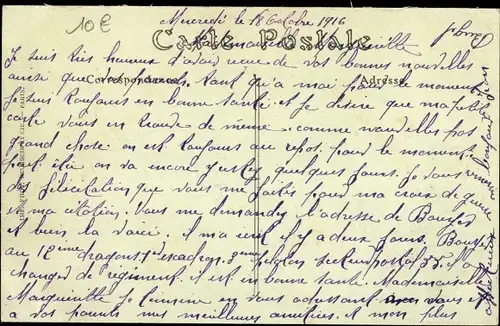 10€
Mercredi le 18 Octobre 1916
Carte Postale
Mademoiselle Marguiritte
Correspondance Adresse
Je suis très heureux d'avoir reçue de vos bonnes nouvelles
ainsi que vos parents. tant qu'a moi pour le moment
je suis toujours en bonne santé et je désire que ma petite
carte vous en trouve de même. comme nouvelles pas
grand chose on est toujours au repos. pour le moment
peut être on va encore y rester quelques jours. Je vous remerci
des félicitation que vous me faites pour ma croix de guerre
et ma citation. Vous me demandez l'adresse de
et bien la voici. il ma écrit il y a deux jours.
au 12ème dragons 1er escadron. 3ème peloton secteur postal 55. il a
changer de régiment. il est en bonne santé. Mademoiselle
Marguiritte je termine en vous adressant a vous et
a vos parents mes meilleures amitiés. et mon plus